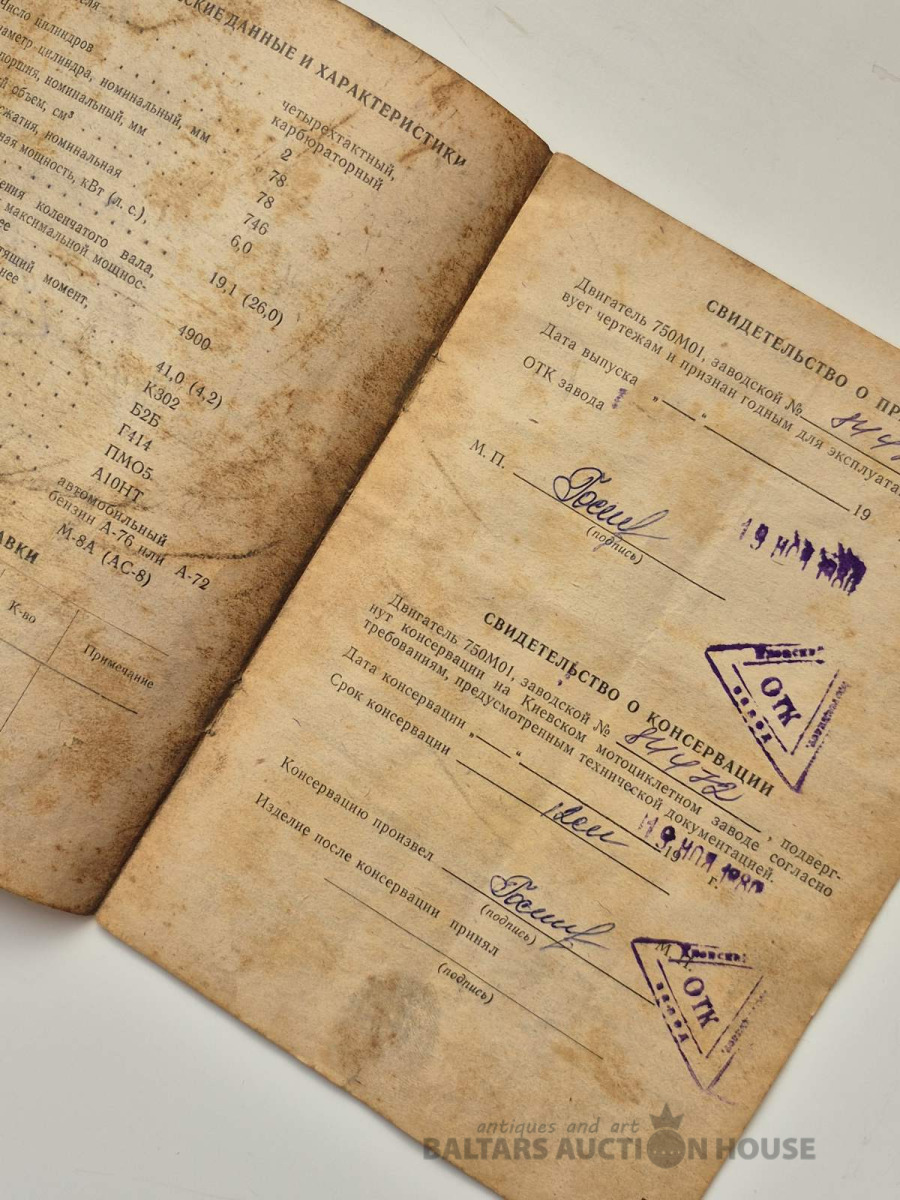 СКИЕ ДАННЫЕ И ХАРАКТЕРИСТИКИ
четырехтактный,
карбюраторный
число цилиндров 2
аметр цилиндра, номинальный, мм 78
поршня, номинальный, мм 78
объем, см³ 746
сжатия, номинальная 6,0
ная мощность, кВт (л. с.), 19,1 (26,0)
ения коленчатого вала,
максимальной мощнос-
4900
тящий момент,
нее 41,0 (4,2)
К302
Б2Б
Г414
ПМО5
А10НТ
автомобильный
бензин А-76 или А-72
М-8А (АС-8)
АВКИ
К-во Примечание
СВИДЕТЕЛЬСТВО О ПР
Двигатель 750М01, заводской №
вует чертежам и признан годным для эксплуата
Дата выпуска „ “ 19
ОТК завода
М. П.
(подпись)
19 НОЯ
Киевский
ОТК
завод
СВИДЕТЕЛЬСТВО О КОНСЕРВАЦИИ
Двигатель 750М01, заводской № 84472, подверг-
нут консервации на Киевском мотоциклетном заводе согласно
требованиям, предусмотренным технической документацией.
Дата консервации „ “ 19 г.
19 НОЯ 1980
Срок консервации
Консервацию произвел
(подпись)
Изделие после консервации принял
(подпись)
М. П.
Киевский
ОТК
завод
antiques and art
BALTARS AUCTION HOUSE